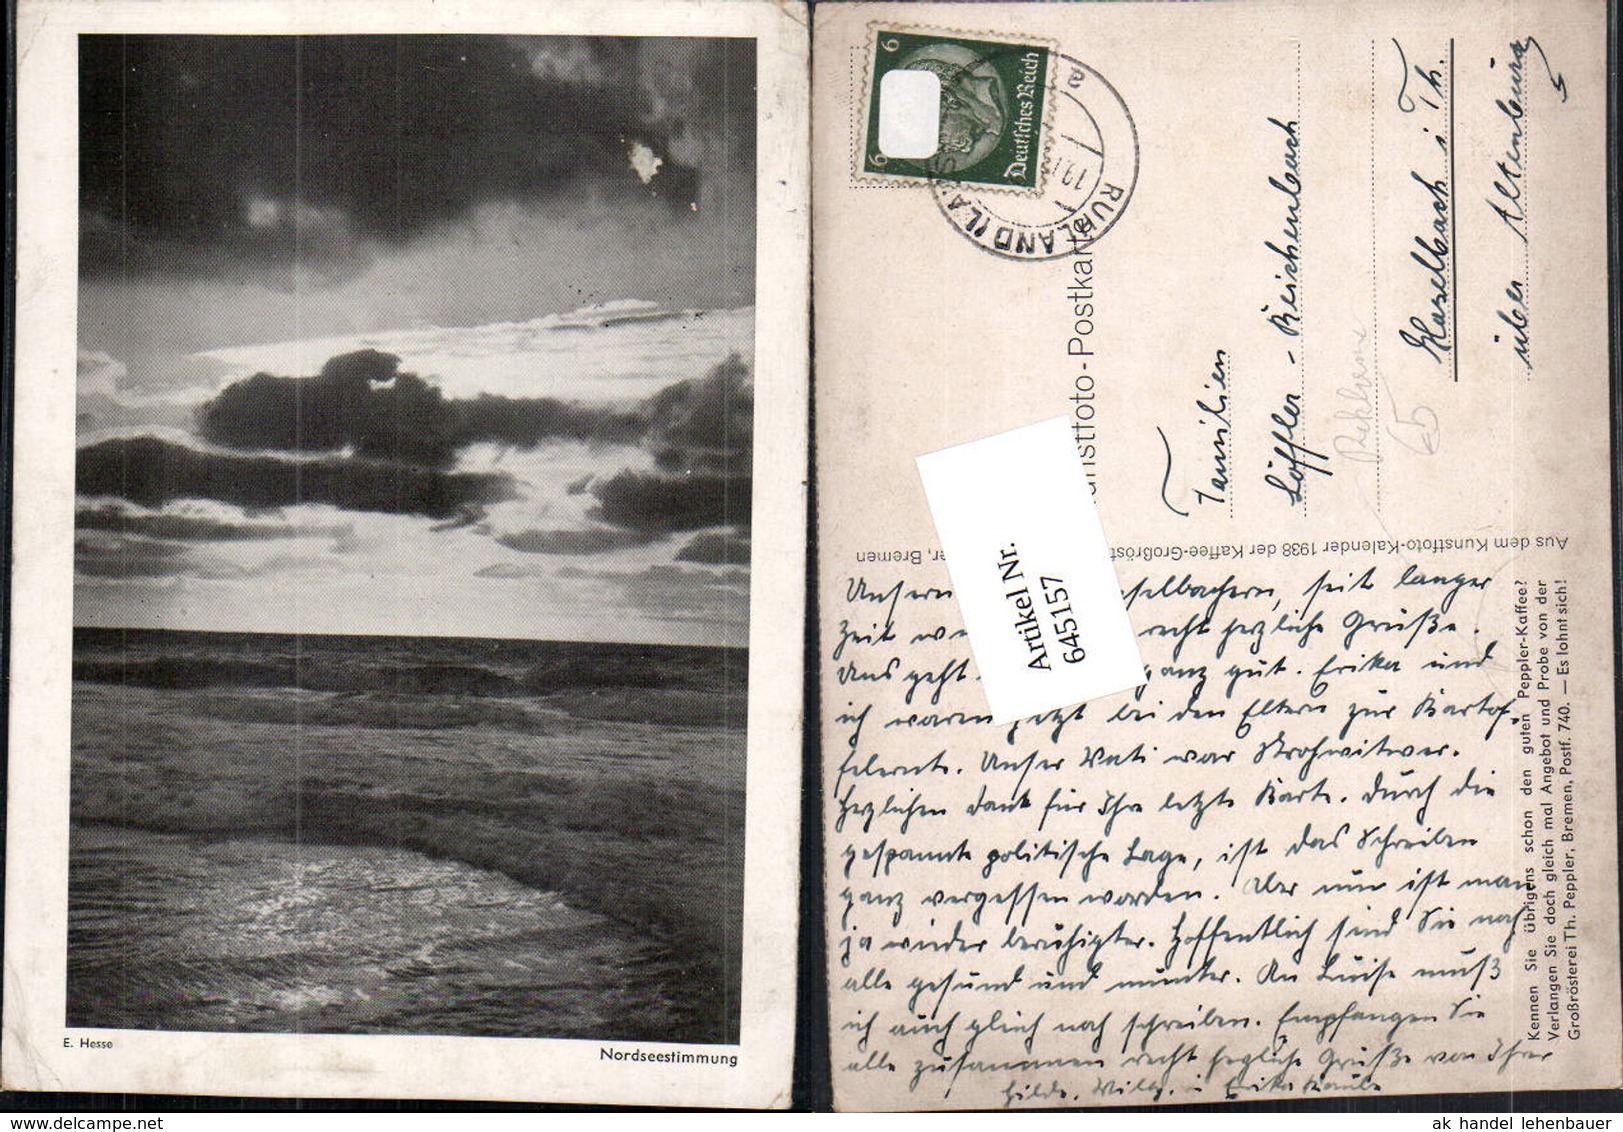 E. Hesse
Nordseestimmung
6
6
Deutsches Reich
RUHLAND (LAUS
19.
a
Kunstfoto-Postkarte
Familien
Löffler - Reichenbach
Haselbach i Th.
über Altenburg
5
Artikel Nr.
645157
Aus dem Kunstfoto-Kalender 1938 der Kaffee-Großröst er, Bremen
Kennen Sie übrigens schon den guten Peppler-Kaffee?
Verlangen Sie doch gleich mal Angebot und Probe von der
Großrösterei Th. Peppler, Bremen, Postf. 740. — Es lohnt sich!
Unsern selbachern, seit langer
Zeit we recht herzliche Grüße.
Uns geht ganz gut. Erika und
ich waren jetzt bei den Eltern zur Kartof-
felernte. Unser Vati war Strohwitwer.
Herzlichen Dank für Ihre letzte Karte. Durch die
gespannte politische Lage, ist das Schreiben
ganz vergessen worden. Aber nun ist man
ja wieder beruhigter. Hoffentlich sind Sie noch
alle gesund und munter. An Luise muß
ich auch gleich noch schreiben. Empfangen Sie
alle zusammen recht herzliche Grüße von Ihrer
Hilde, Willy, u Erika
ak handel lehenbauer